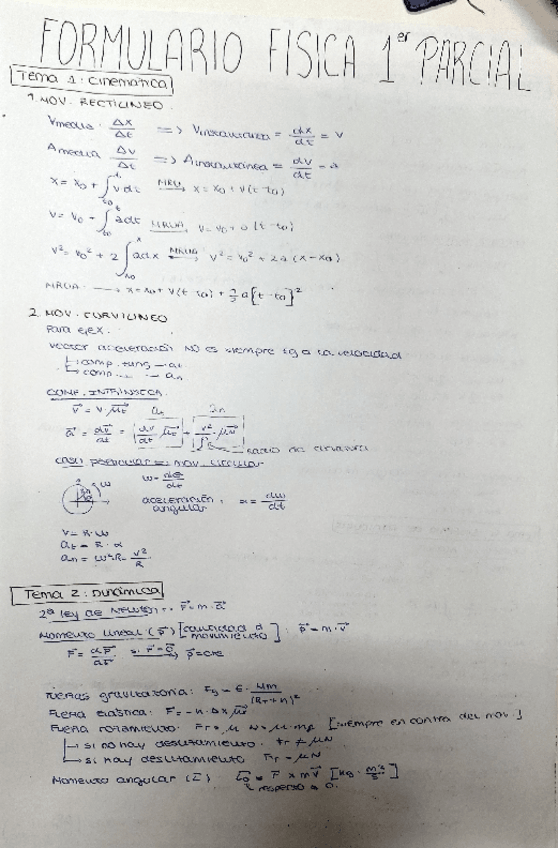 FORMULARIO FISICA 1er PARCIAL
Tema 1: cinemática
1. MOV. RECTILINEO
Vmedia: Δx/Δt => Vinstantánea = dx/dt = v
Amedia Δv/Δt => Ainstantánea = dv/dt = a
x = x₀ + ∫ v dt MRU→ x = x₀ + v(t-t₀)
v = v₀ + ∫ a dt MRUA→ v = v₀ + a(t-t₀)
v² = v₀² + 2 ∫ a dx MRUA v² = v₀² + 2a(x-x₀)
MRUA: → x = x₀ + v(t-t₀) + ½ a[t-t₀]²
2. MOV. CURVILINEO
Para ejex.
vector aceleración NO es siempre tg a la velocidad
comp. tang → at
comp. → an
COMP. INTRÍNSECA
v⃗ = v · μt
a⃗ = dv⃗/dt = dv/dt μt + v²/ρ · μn
radio de curvatura
caso particular = mov. circular
w = dθ/dt
aceleración angular α = dw/dt
v = R·w
at = R·α
an = w²R = v²/R
Tema 2: Dinámica
2ª ley de Newton: F⃗ = m·a⃗
Momento lineal (p⃗) [cantidad d movimiento]: p⃗ = m·v⃗
F⃗ = dp⃗/dt si F⃗=0 → p⃗ = cte
Fuerza gravitatoria: Fg = G · Mm/(RT+h)²
Fuerza elástica: F = -k·Δx
Fuerza rozamiento: Fr = μ N = μ·mg [siempre en contra del mov.]
si no hay deslizamiento: fr ≠ μN
si hay deslizamiento Fr = μN
Momento angular (L⃗) L₀ = r⃗ x mv⃗ [kg · m²/s]
respecto a 0.